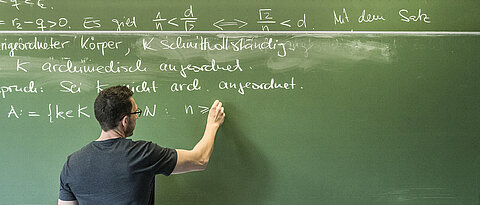 -q>0.
= r₂-q>0. Es gibt 1/n < d/√2 ⟺ √2/n < d. Mit dem Satz
angeordneter Körper, K schnittvollständig.
K archimedisch angeordnet.
spruch: Sei K nicht arch. angeordnet.
A := {k∈K N : n ≥